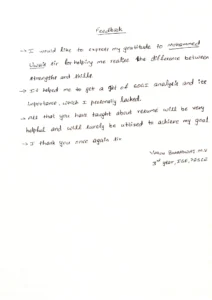 Feedback
→ I would like to express my gratitude to Mohammed
sir for helping me realize the difference between
strengths and skills.
→ It helped me to get a gist of SOCI analysis and its
importance, what I personally lacked.
→ All that you have taught about resume will be very
helpful and will surely be utilised to achieve my goal.
→ I thank you once again sir
3rd year,